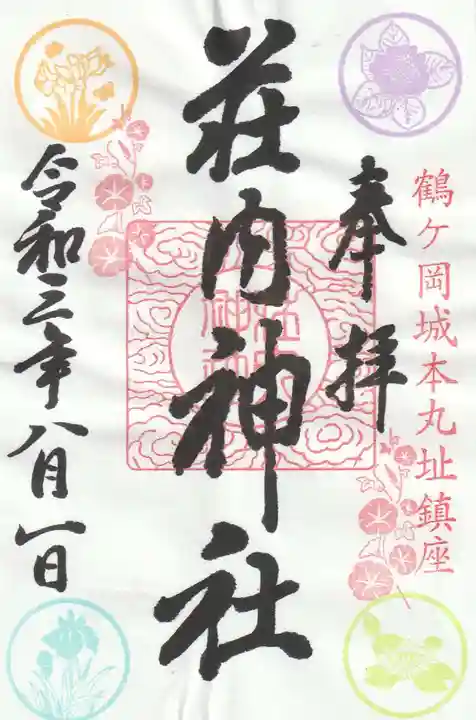 鶴ヶ岡城本丸址鎮座
奉拝
荘内神社
令和三年八月一日